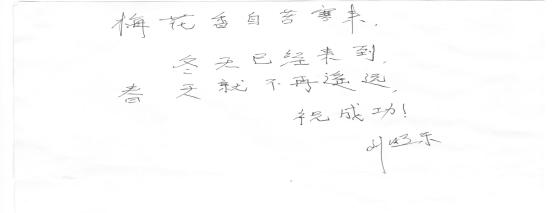 梅花香自苦寒来,
冬天已经来到,
春天就不再遥远,
祝成功!